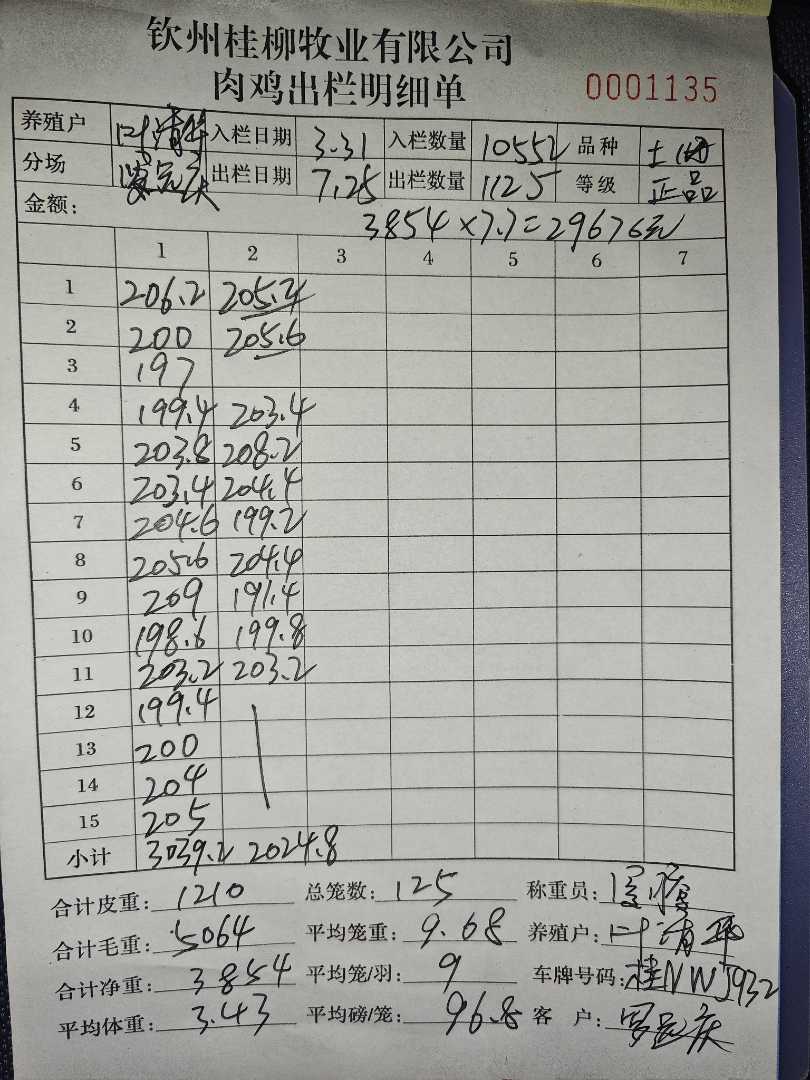 钦州桂柳牧业有限公司
肉鸡出栏明细单 0001135
养殖户 叶清华 入栏日期 3.31 入栏数量 10552 品种
分场 出栏日期 7.25 出栏数量 1125 等级 正品
金额: 3854×7.7=29676元
1 2 3 4 5 6 7
1 206.2 205.4
2 200 205.6
3 197
4 199.4 203.4
5 203.8 208.2
6 203.4 204.4
7 204.6 199.2
8 205.6 204.4
9 209 191.4
10 198.6 199.8
11 203.2 203.2
12 199.4
13 200
14 204
15 205
小计 3039.2 2024.8
合计皮重: 1210 总笼数: 125 称重员:
合计毛重: 5064 平均笼重: 9.68 养殖户: 叶清
合计净重: 3854 平均笼/羽: 9 车牌号码: 桂NWJ932
平均体重: 3.43 平均磅/笼: 96.8 客户: